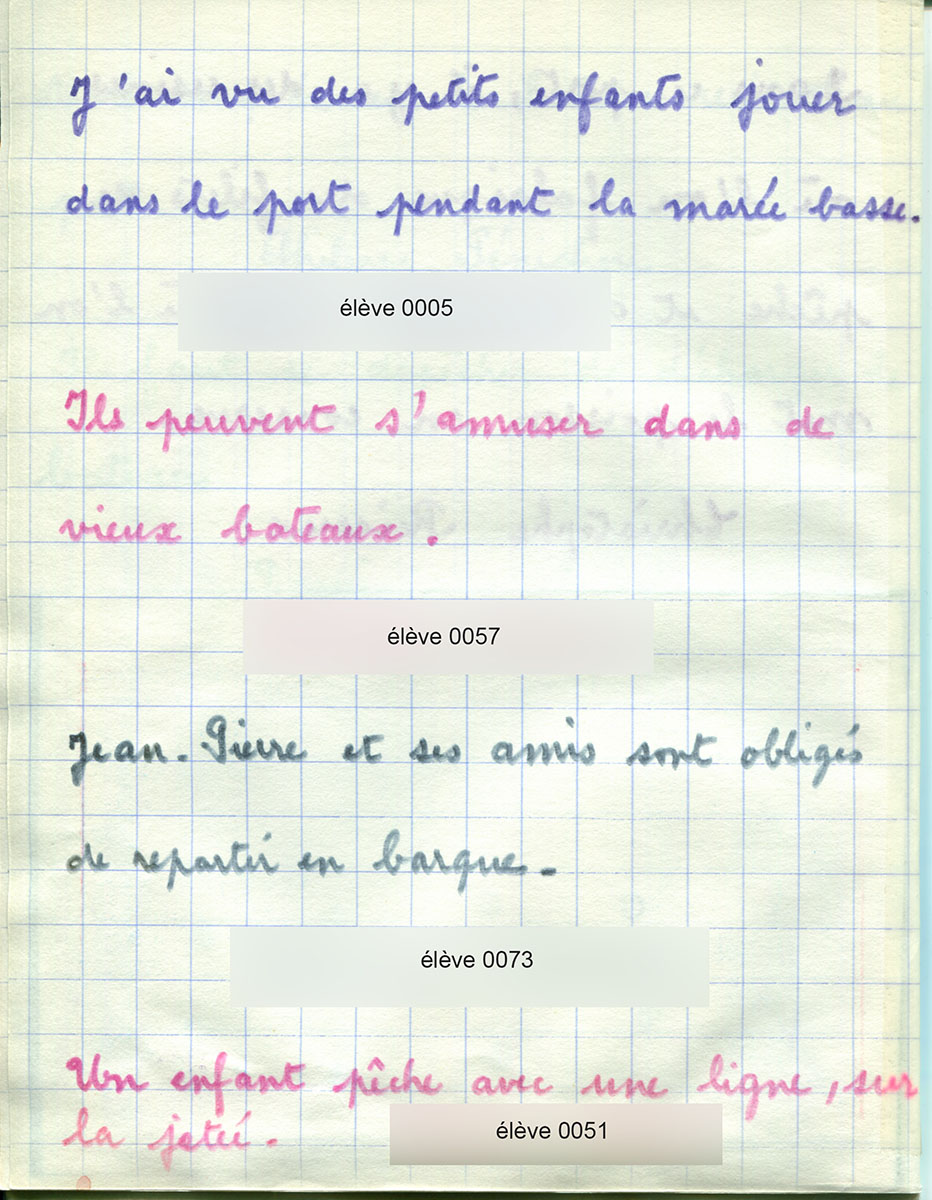 J'ai vu des petits enfants jouer
dans le port pendant la marée basse.
élève 0005
Ils peuvent s'amuser dans de
vieux bateaux.
élève 0057
Jean-Pierre et ses amis sont obligés
de repartir en barque.
élève 0073
Un enfant pêche avec une ligne, sur
la jeteé.
élève 0051